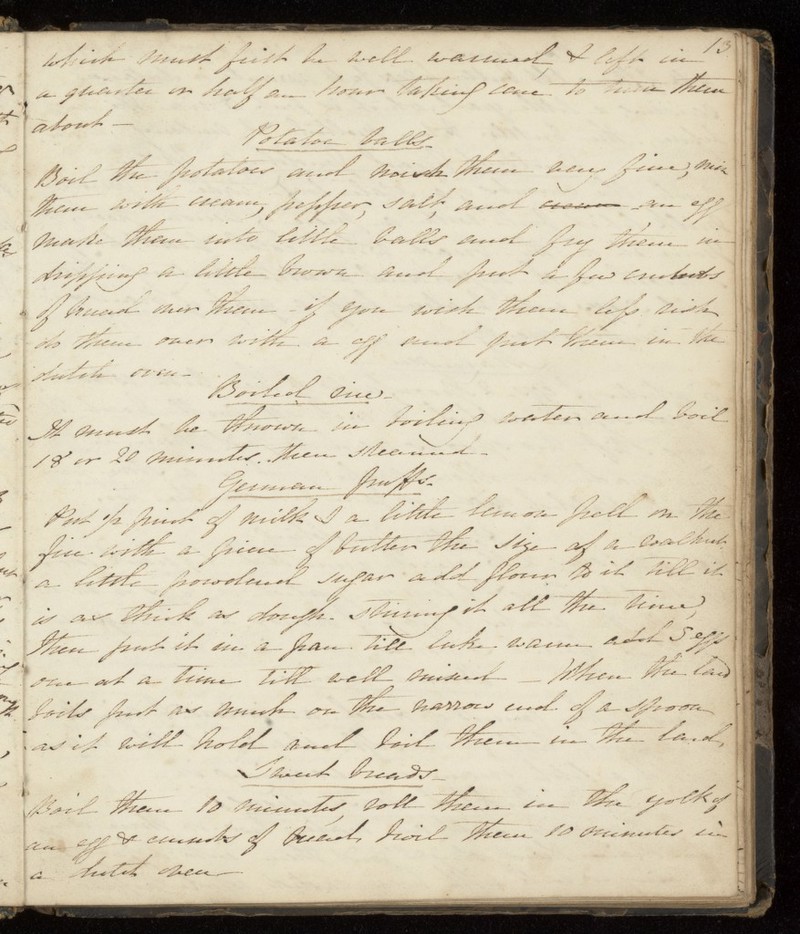 13
which must first be well warmed, & left in
a quarter or half an hour taking care to turn them
about —
Potatoe balls.
Boil the potatoes and mash them very fine, mix
them with cream, pepper, salt, and cream an egg
make them into little balls and fry them in
dripping a little brown and put a few crumbs
of bread over them – if you wish them less rich
do them over with a egg and put them in the
dutch oven –
Boiled rice.
It must be thrown in boiling water and boil
18 or 20 minutes. then strained –
German puffs.
Put a pint of milk & a little lemon peel on the
fire with a piece of butter the size of a walnut
a little powdered sugar add flour to it till it
is as thick as dough. stirring it all the time,
then put it in a pan till luke warm add 5 eggs
one at a time till well mixed – When the lard
boils put as much on the narrow end of a spoon
as it will hold and boil them in the lard,
Sweet breads
Boil them 10 minutes, roll them in the yolk of
an egg & crumbs of bread, broil them 10 minutes in
a dutch oven –